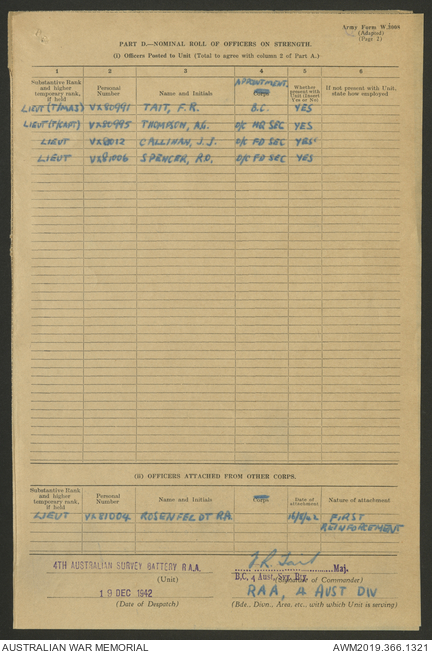 Army Form W.3008
(Adapted)
(Page 2)
PART D.—NOMINAL ROLL OF OFFICERS ON STRENGTH.
(i) Officers Posted to Unit (Total to agree with column 2 of Part A.)
1 2 3 4 5 6
Substantive Rank and higher temporary rank, if held
Personal Number
Name and Initials
APPOINTMENT
Corps
Whether present with Unit (Insert Yes or No)
If not present with Unit, state how employed
LIEUT (T/MAJ) VX80991 TAIT, F.R. B.C. YES
LIEUT (T/CAPT) VX80995 THOMPSON, A.G. O/C HQ SEC YES
LIEUT CALLINAN, J.J. O/C FD SEC YES
LIEUT VX81006 SPENCER, R.O. O/C FD SEC YES
(ii) OFFICERS ATTACHED FROM OTHER CORPS.
Substantive Rank and higher temporary rank, if held
Personal Number
Name and Initials
Corps
Date of attachment
Nature of attachment
LIEUT VX81004 ROSENFELDT R.A. FIRST
REINFORCEMENT
4TH AUSTRALIAN SURVEY BATTERY R.A.A.
(Unit)
F R Tait Maj.
B.C. 4 Aust. Svy. Bty.
(Signature of Commander)
19 DEC 1942
(Date of Despatch)
RAA, 4 AUST DIV
(Bde., Divn., Area, etc., with which Unit is serving)
AUSTRALIAN WAR MEMORIAL
AWM2019.366.1321